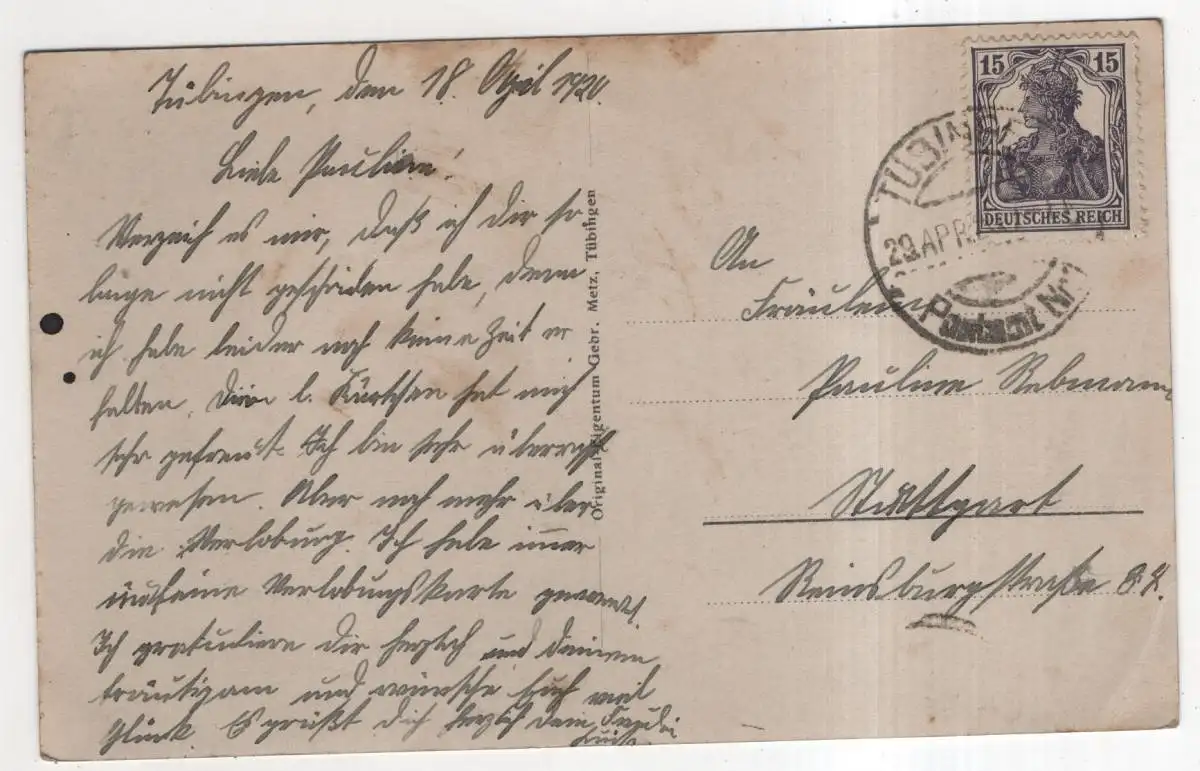 Tübingen, den 18. April 1920.
Liebe Pauline!
Verzeih es mir, daß ich dir so
lange nicht geschrieben habe, denn
ich habe leider noch keine Zeit er
halten. Dein l. Kärtchen hat mich
sehr gefreut. Ich bin sehr überrascht
gewesen. Aber noch mehr über
die Verlobung. Ich habe immer
auf eine Verlobungskarte gewartet.
Ich gratuliere dir herzlich und deinem
Bräutigam und wünsche Euch viel
Glück. Es grüßt dich herzlich
Original-Eigentum Gebr. Metz, Tübingen
15 15
DEUTSCHES REICH
TÜBINGEN
29.APR.
Postamt Nr.1
An
Fräulein
Pauline Rebmann
Stuttgart
Reinsburgstraße